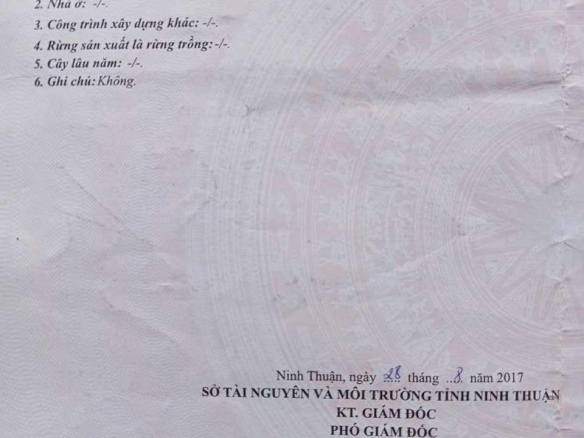 2. Nhà ở: -/-.
3. Công trình xây dựng khác: -/-.
4. Rừng sản xuất là rừng trồng: -/-.
5. Cây lâu năm: -/-.
6. Ghi chú: Không.
Ninh Thuận, ngày 28 tháng 8 năm 2017
SỞ TÀI NGUYÊN VÀ MÔI TRƯỜNG TỈNH NINH THUẬN
KT. GIÁM ĐỐC
PHÓ GIÁM ĐỐC